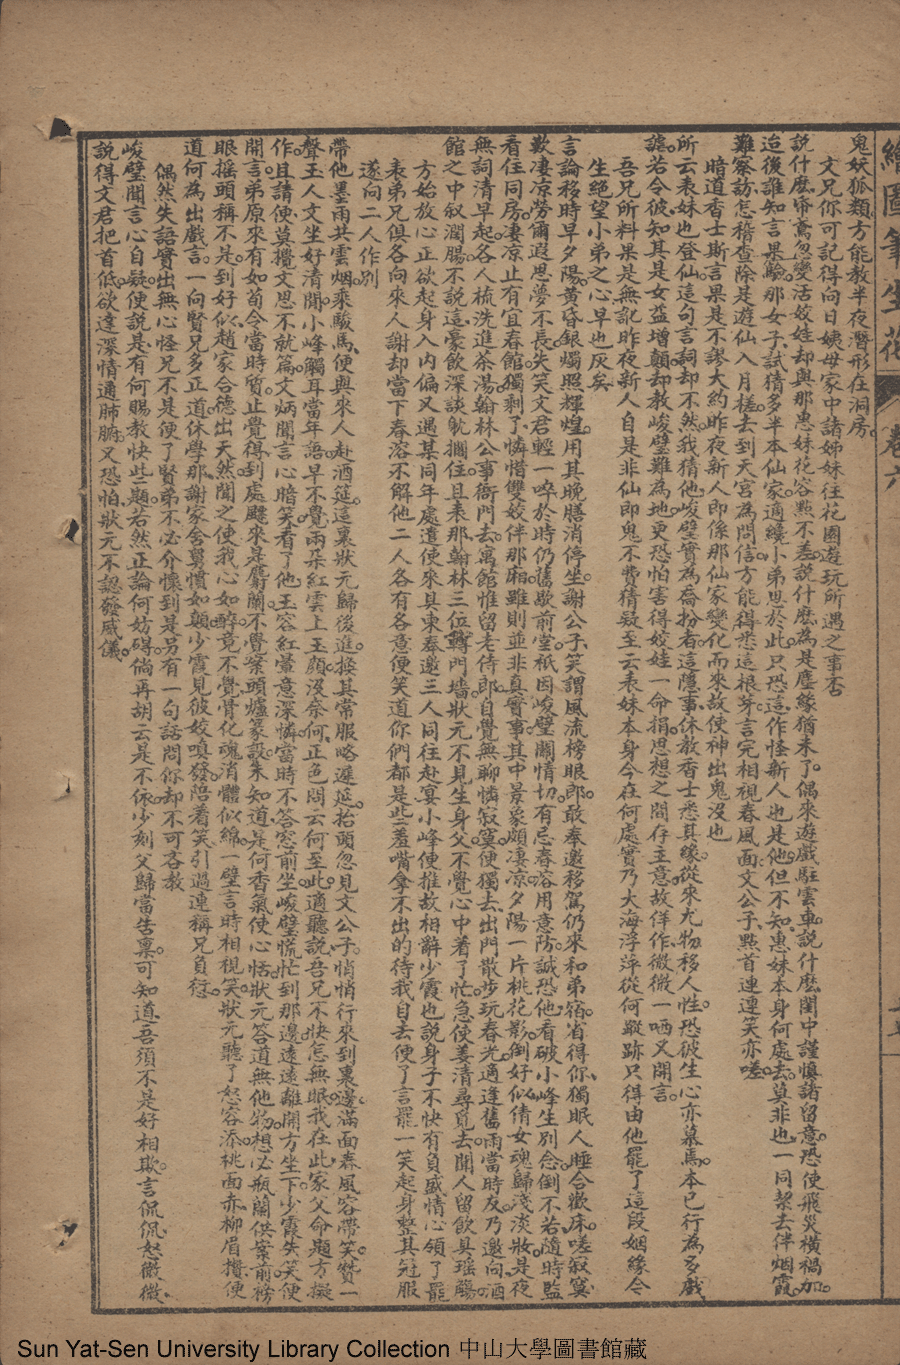 繪圖筆生花 卷六
鬼妖狐類。方能教半夜潛形在洞房。
文兄你可記得向日姨母家中。諸姊妹往花園遊玩所遇之事否
說什麼帝鸞忽變活姣娃。却與那惠妹花容點不差。說什麼為是塵緣猶未了。偶來遊戲駐雲車。說什麼閨中謹慎諸留意。恐使飛災橫禍加。
迨後誰知言果驗。那女子試猜多半本仙家。適纔小弟思於此。只恐這作怪新人也是他。但不知惠妹本身何處去。莫非也一同挈去伴烟霞。
難察訪。怎稽查。除是遊仙入月槎。去到天宮為問信。方能得悉這根芽。言完相視春風面。文公子點首連連笑亦嗟。
暗道香士斯言果是不謬大約昨夜新人即係那仙家變化而來故使神出鬼沒也
所云表妹也登仙。這句言詞却不然。我猜他峻璧實為喬扮者。這隱事休教香士悉其緣。從來尤物移人性。恐彼生心亦慕焉。本已行為多戲
謔。若令彼知其是女益增顛。却教峻璧難為地。更恐怕害得姣娃一命捐。思想之間存主意。故佯作微微一哂又開言。
吾兄所料果是無訛昨夜新人自是非仙即鬼不費猜疑至云表妹本身今在何處實乃大海浮萍從何蹤跡只得由他罷了這段姻緣今
生絕望小弟之心早也灰矣
言論移時早夕陽。黃昏銀燭照輝煌。用其晚膳消停坐。謝公子笑謂風流榜眼郎。敢奉邀移駕仍來和弟宿。省得你獨眠人睡合歡床。嗟寂寞
歎淒涼。勞爾遐思夢不長。失笑文君輕一啐。於時仍舊歇前堂。祇因峻璧關情切。有忌春溶用意防。誠恐他看破小峰生別念。倒不若隨時監
看住同房。淒涼止有宜春館。獨剩了憐惜雙姣伴那廂。雖則並非真實事。其中景象頗淒涼。夕陽一片桃花影。倒好似倩女魂歸淺淡妝。是夜
無詞清早起。各人梳洗進茶湯。翰林公事衙門去。寓館惟留老侍郎。自覺無聊憐寂寞。便獨去出門散步玩春光。適逢舊雨當時友。乃邀向酒
館之中叙濶腸。不說這豪飲深談觥擱住。且表那翰林三位轉門墻。狀元不見生身父。不覺心中着了忙。急使姜清尋覓去。聞人留飲具瑤觴
方始放心正欲起身入內偏又遇某同年處遣使來具柬奉邀三人同往赴宴小峰便推故相辭少霞也說身子不快有負盛情心領了罷
表弟兄俱各向來人謝却當下春溶不解他二人各有各意便笑道你們都是些羞嘴拿不出的待我自去便了言罷一笑起身整其冠服
遂向二人作別
帶他墨雨共雲烟。乘駿馬便與來人赴酒筵。這裏狀元歸後進。換其常服略遲延。抬頭忽見文公子。悄悄行來到裏邊。滿面春風容帶笑。贊一
聲玉人文坐好清閒。小峰觸耳當年語。早不覺兩朵紅雲上玉顏。沒奈何正色問云何至此。適聽說吾兄不快怎無眠。我在此家父命題方擬
作。且請便莫攪文思不就篇。文炳聞言心暗笑。看了他玉容紅暈意深憐。當時不答窓前坐。峻璧慌忙到那邊。遠遠離開方坐下。少霞失笑便
開言。弟原來有如荀令當時質。止覺得到處飈來是麝蘭。不覺案頭爐篆設。未知道是何香氣使心恬。狀元答道無他物。想必瓶蘭供案前。榜
眼搖頭稱不是。到好似趙家合德出天然。聞之使我心如醉。竟不覺骨化魂消體似綿。一璧言時相視笑。狀元聽了怒容添。桃面赤。柳眉攢。便
道何為出戲言。一向賢兄多正道。休學那謝家舍舅慣如顛。少霞見彼姣嗔發。陪着笑引過連稱兄負愆。
偶然失語實出無心怪兄不是便了賢弟不必介懷到是另有一句話問你却不可吝教
峻璧聞言心自疑。便說是有何賜教快些題。若然正論何妨碍。倘再胡云是不依。少刻父歸當告稟。可知道吾須不是好相欺。言侃侃。怒微微
說得文君把首低。欲達深情通肺腑。又恐怕狀元不認發威儀。
Sun Yat-Sen University Library Collection 中山大學圖書館藏